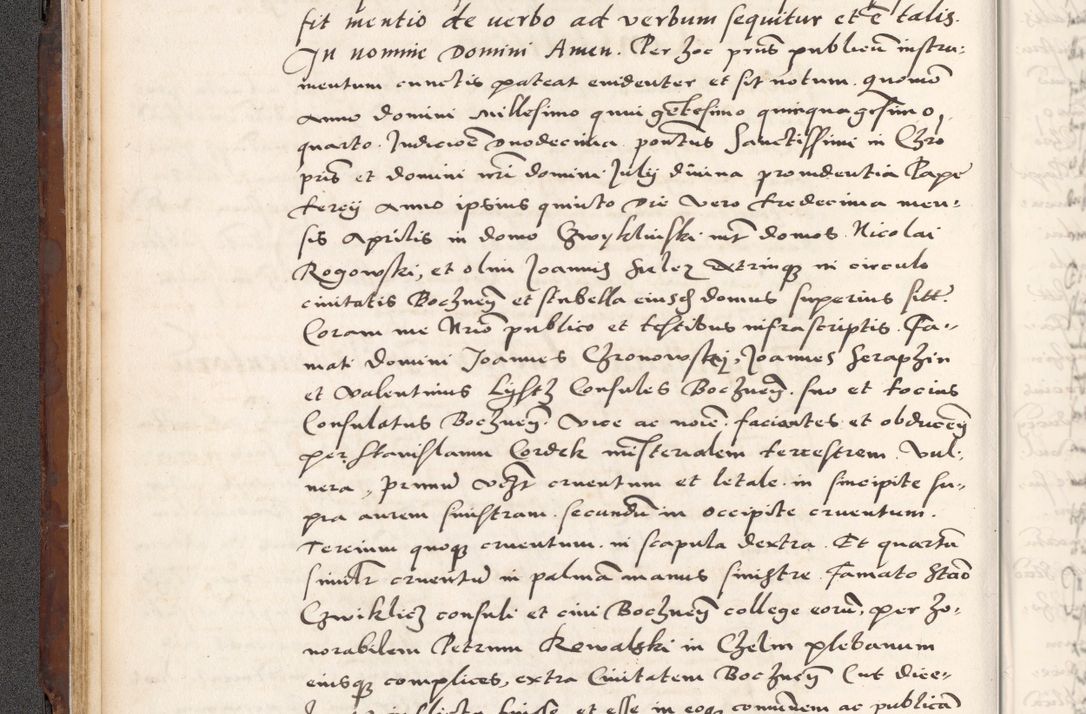 fit mentio de verbo ad verbum sequitur et ē talis.
In nomine Domini Amen. Per hoc pn̄s publicū instru-
mentum cunctis pateat evidenter et sit notum. Quomō
Anno domini millesimo quingētesimo quinquagesimo
quarto. Indicioē duodecima pontus Sanctissimi in Chro
pris et domini nr̄i domini Julij divina providentia Pape
tercij Anno ipsius quinto Die vero tredecima men-
sis Aprilis in domo Czwyklinski int domos Nicolai
Rogowski, et olim Joannis Sulez utrinque in circulo
civitatis Bochnen̄ et stubella eiusdē domus superius sitt̄.
Coram me Nrio publico et testibus infrascriptis. Fa-
mati domini Joannes Chronowskj, Joannes Seraphin
et Valentinus Lyhtz Consules Bochnen̄. suo et tocius
Consulatus Bochnen̄. vice ac noīe facientes et obducen̄
per Stanislaum Cordek mīsterialem terrestrem Vul-
nera, primū vidzt cruentum et letale in sincipite su-
pra aurem sinistram. secundū in occipite cruentum.
Tercium quoque cruentum in scapula dextra. Et quartū
similr̄ cruentū in palma manus sinistre Famato Stāo
Czwiklicz consuli et civi Bochnen̄ college eorū, per ho-
norabilem Petrum Kowalski in Chelm plebanum
eiusque complices, extra Civitatem Bochnen̄ (ut dice-
inflicta fuisse et esse in eoque conventem ac publica